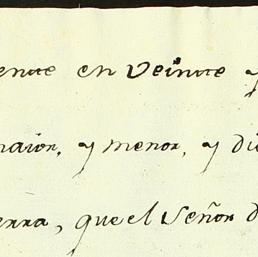 ente en veinte y
maior, y menor, y di
erra, que el Señor d